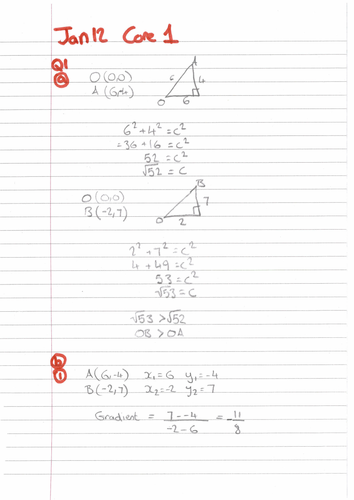 Jan 12 Core 1
Q1
(a)
O (0,0)
A (6,-4)
A
c
4
O
6
6² + 4² = c²
= 36 + 16 = c²
52 = c²
√52 = c
O (0,0)
B (-2,7)
B
7
O
2
2² + 7² = c²
4 + 49 = c²
53 = c²
√53 = c
√53 > √52
OB > OA
(b)
(i)
A (6,-4) x₁=6 y₁=-4
B (-2,7) x₂=-2 y₂=7
Gradient = 7--4 / -2-6 = -11/8